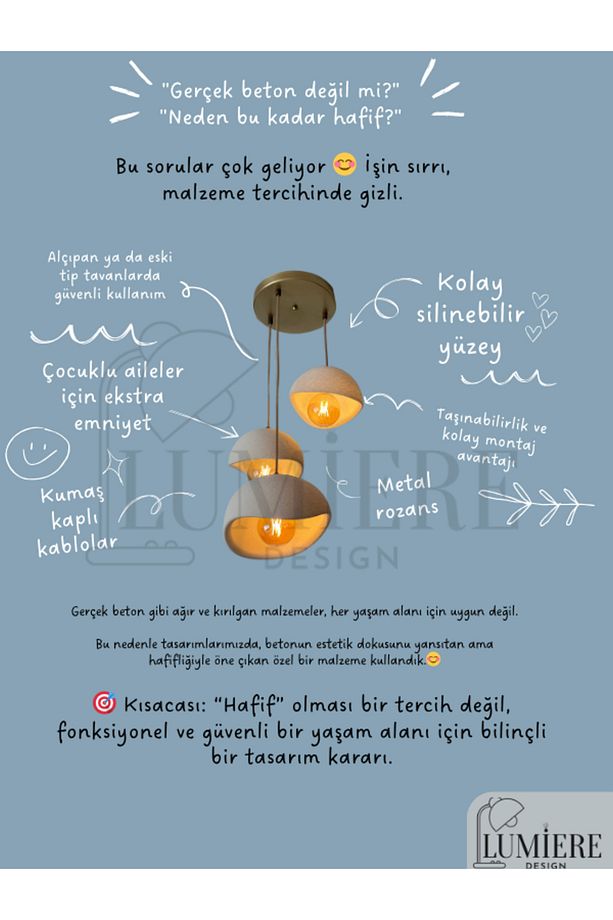 "Gerçek beton değil mi?"
"Neden bu kadar hafif?"
Bu sorular çok geliyor 😊 İşin sırrı,
malzeme tercihinde gizli.
Alçıpan ya da eski
tip tavanlarda
güvenli kullanım
Kolay
silinebilir
yüzey
Çocuklu aileler
için ekstra
emniyet
Taşınabilirlik ve
kolay montaj
avantajı
Kumaş
kaplı
kablolar
Metal
rozans
LUMİERE
DESIGN
Gerçek beton gibi ağır ve kırılgan malzemeler, her yaşam alanı için uygun değil.
Bu nedenle tasarımlarımızda, betonun estetik dokusunu yansıtan ama
hafifliğiyle öne çıkan özel bir malzeme kullandık.😊
🎯 Kısacası: “Hafif” olması bir tercih değil,
fonksiyonel ve güvenli bir yaşam alanı için bilinçli
bir tasarım kararı.
LUMİERE
DESIGN